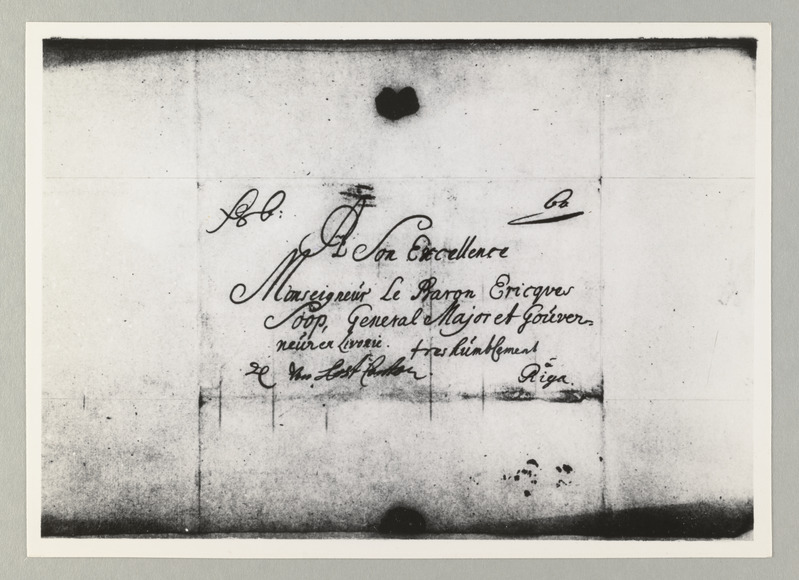 60
A Son Excellence
Monseigneur Le Baron Ericques
Soop, General Major et Gouver-
neur en Livonie. treshumblement
à
Riga.